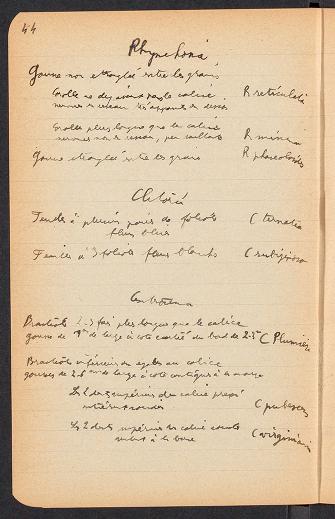 44
Rhynchosia
Gousse non etranglée entre les grains
Corolle ne dépassant pas le calice
nervures en reseau très apparentes en dessous
R reticulata
Corolle plus longue que le calice
nervures non en reseau, peu saillantes
R minima
Gousse etranglée entre les grains
R phaseoloides
Clitoria
Feuilles à plusieurs paires de folioles
fleurs bleues
C ternatea
Feuilles à 3 folioles fleurs blanches
C rubiginosa
Centrosema
Bractéoles 2-3 fois plus longues que le calice
gousse de 1 cm de large à côte écartée du bord de 2-5
C Plumieri
Bractéoles inférieures ou egales au calice
gousses de 2-6 mm de large à côte contiguë à la marge
Les 2 dents supérieures du calice presque
entièrement soudées
C pubescens
Les 2 dents supérieures du calice soudées
seulement à la base
C virginianum